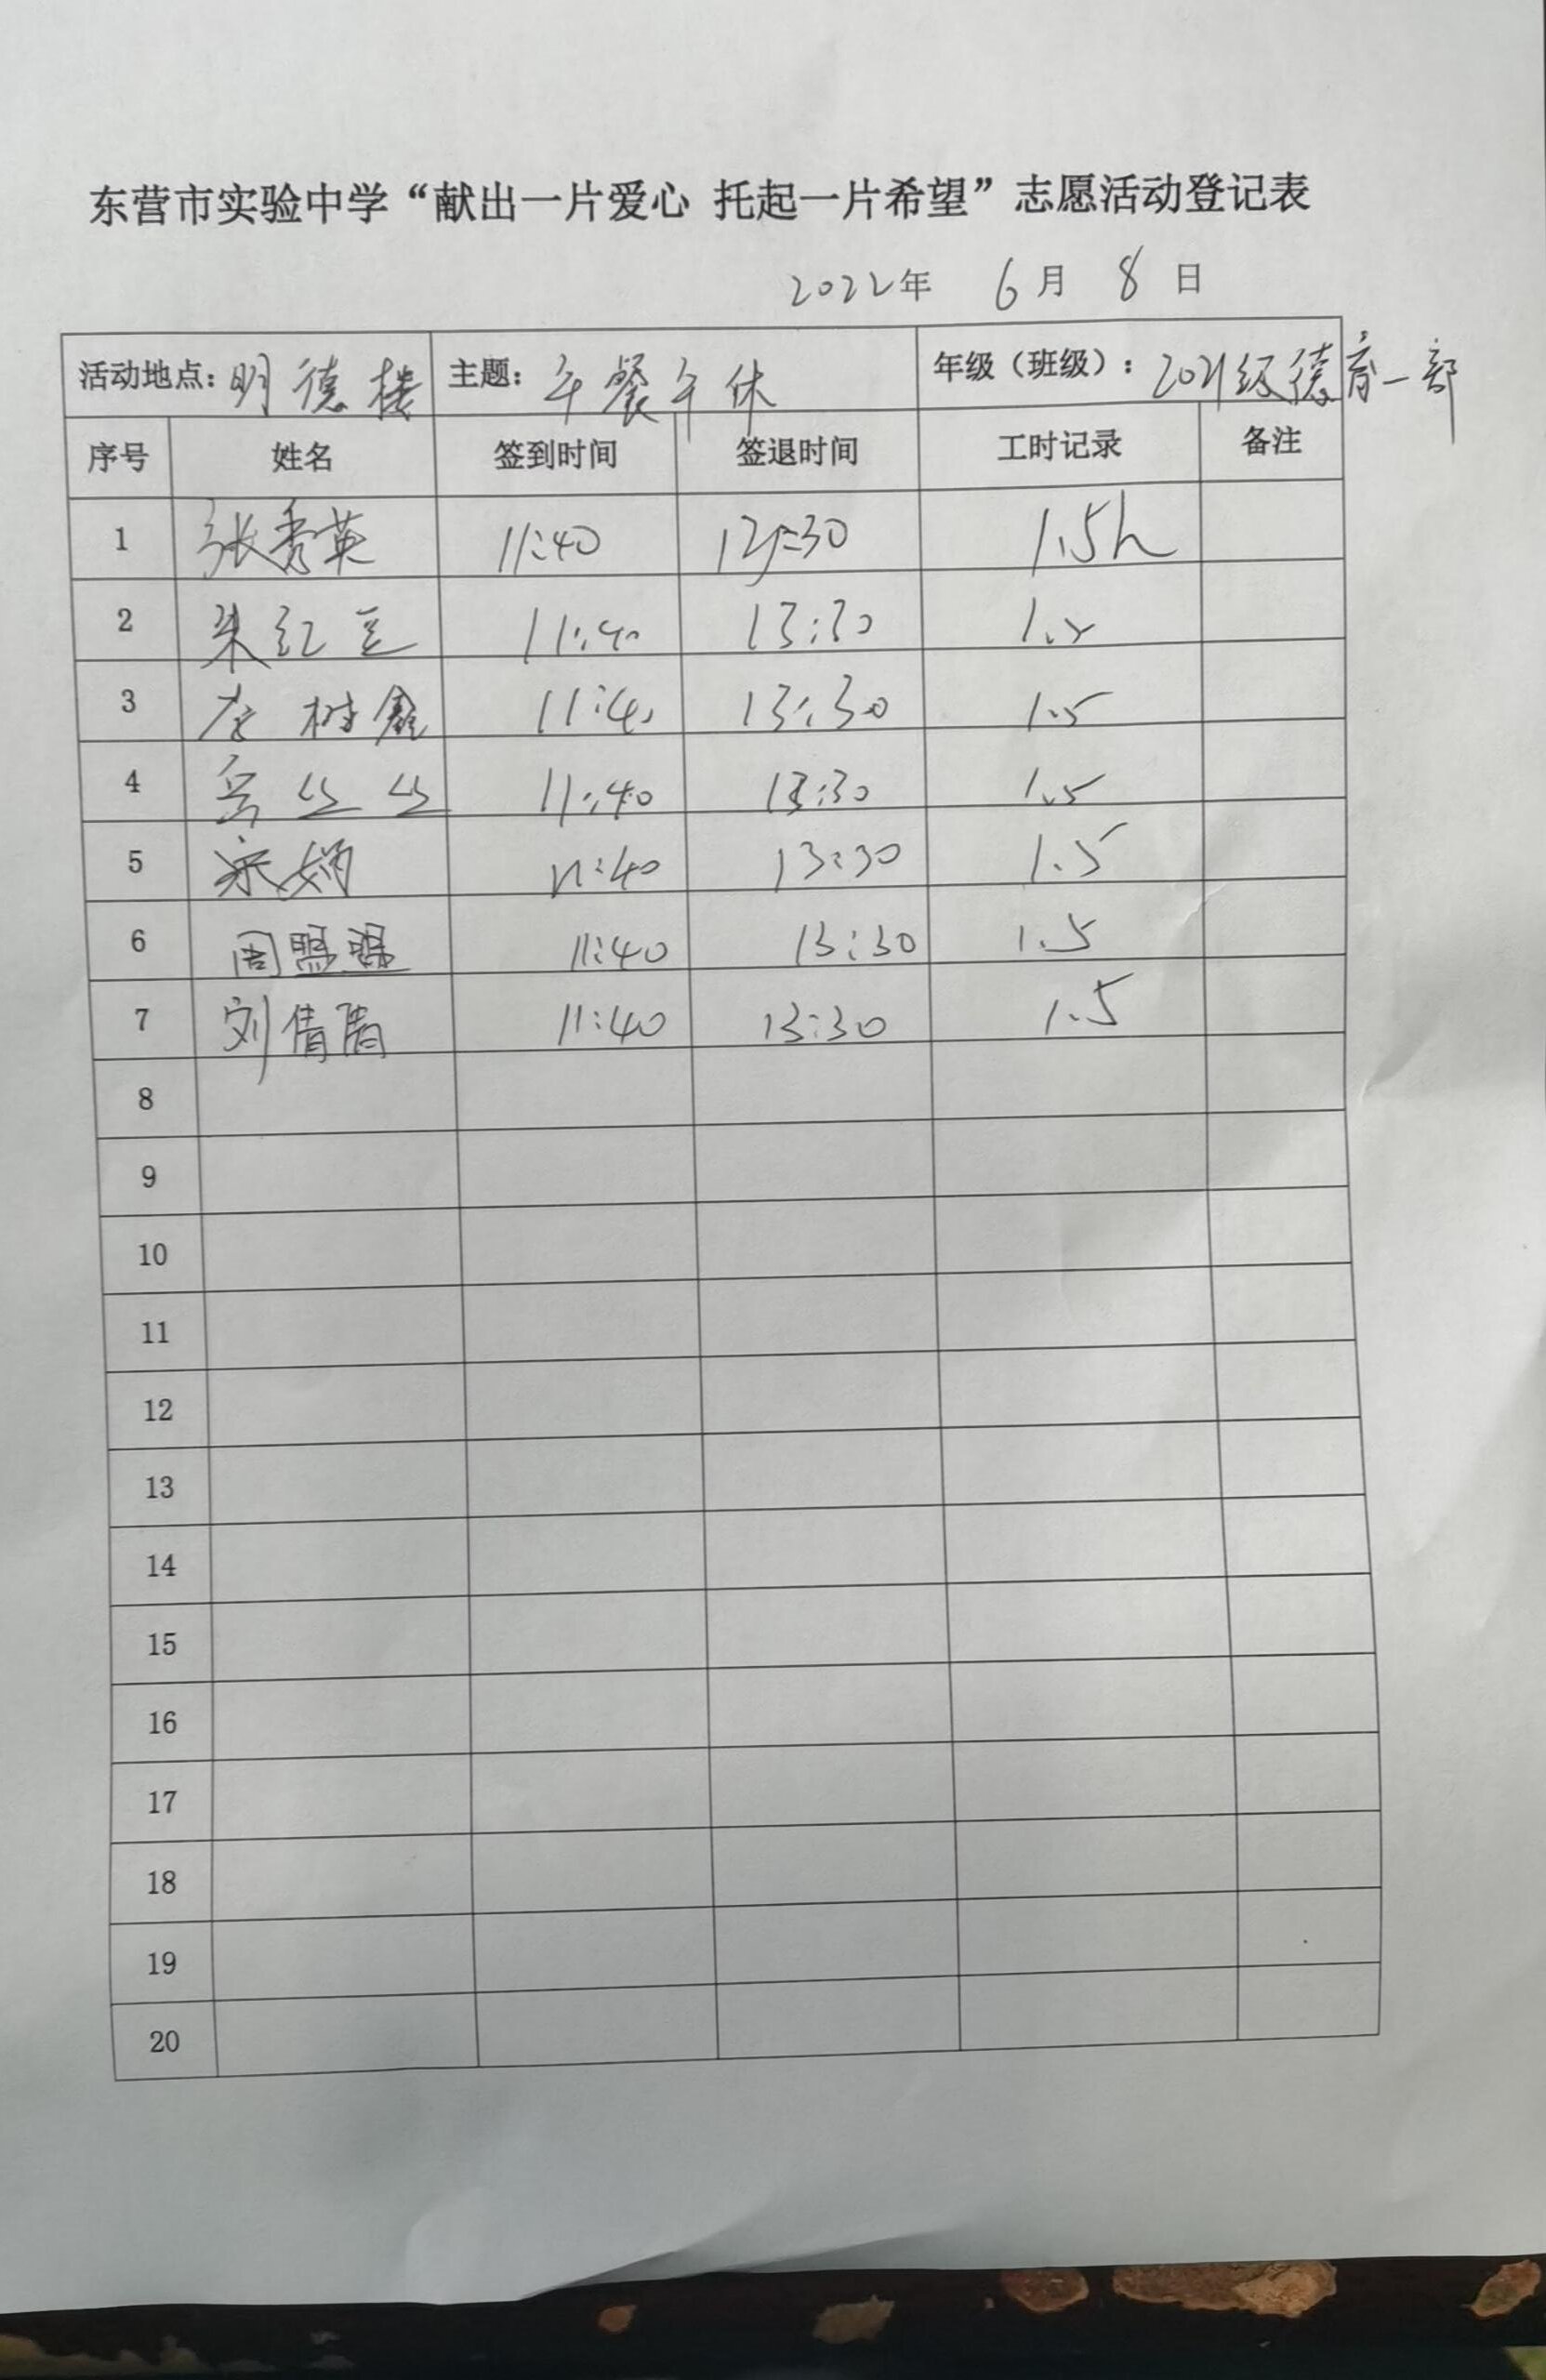 东营市实验中学“献出一片爱心 托起一片希望”志愿活动登记表
2022年 6月 8日
活动地点：明德楼 主题：午餐午休 年级（班级）：2021级德育一部
序号 姓名 签到时间 签退时间 工时记录 备注
1 张秀英 11:40 13:30 1.5h
2 朱红豆 11:40 13:30 1.5
3 树鑫 11:40 13:30 1.5
4 丝丝 11:40 13:30 1.5
5 宋娟 11:40 13:30 1.5
6 周盟盟 11:40 13:30 1.5
7 刘倩倩 11:40 13:30 1.5
8
9
10
11
12
13
14
15
16
17
18
19
20